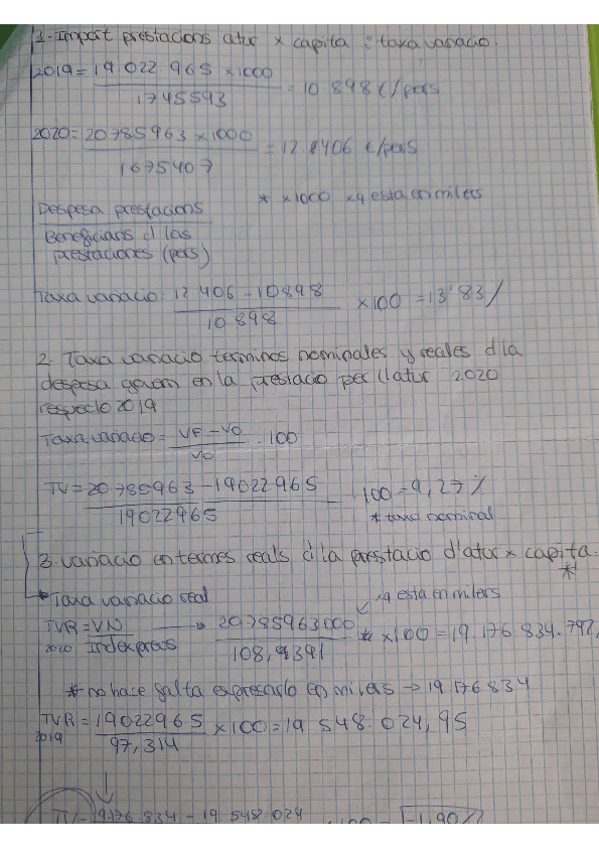 1. Import prestacions atur x capita i taxa variacio.
2019 = 19 022 965 x 1000 / 1745593 = 10 898 €/pers
2020 = 20785963 x 1000 / 1675407 = 12 406 €/pers
Despesa prestacions * x1000 xq esta en milers
Beneficiaris d las
prestaciones (pers)
Taxa variacio: 12 406 - 10898 / 10 898 x 100 = 13'83 %
2. Taxa variacio terminos nominales y reales d la
despesa govern en la prestacio per l'atur 2020
respecto 2019
Taxa variacio = VF - V0 / V0 . 100
TV = 20 785963 - 19022965 / 19022965 100 = 9,27 %
* taxa nominal
3. variacio en termes reals d la prestacio d'atur x capita.
* Taxa variacio real xq esta en milers
TVR 2020 = VN / Index preus → 20.785963000 / 108,4391 * x 100 = 19.176 834.792,
* no hace falta expresarlo en milers → 19 176 834
TVR 2019 = 19022965 / 97,314 x 100 = 19 548.024,95
TV = 19.176 834 - 19 548 024 100 = -1,90 %